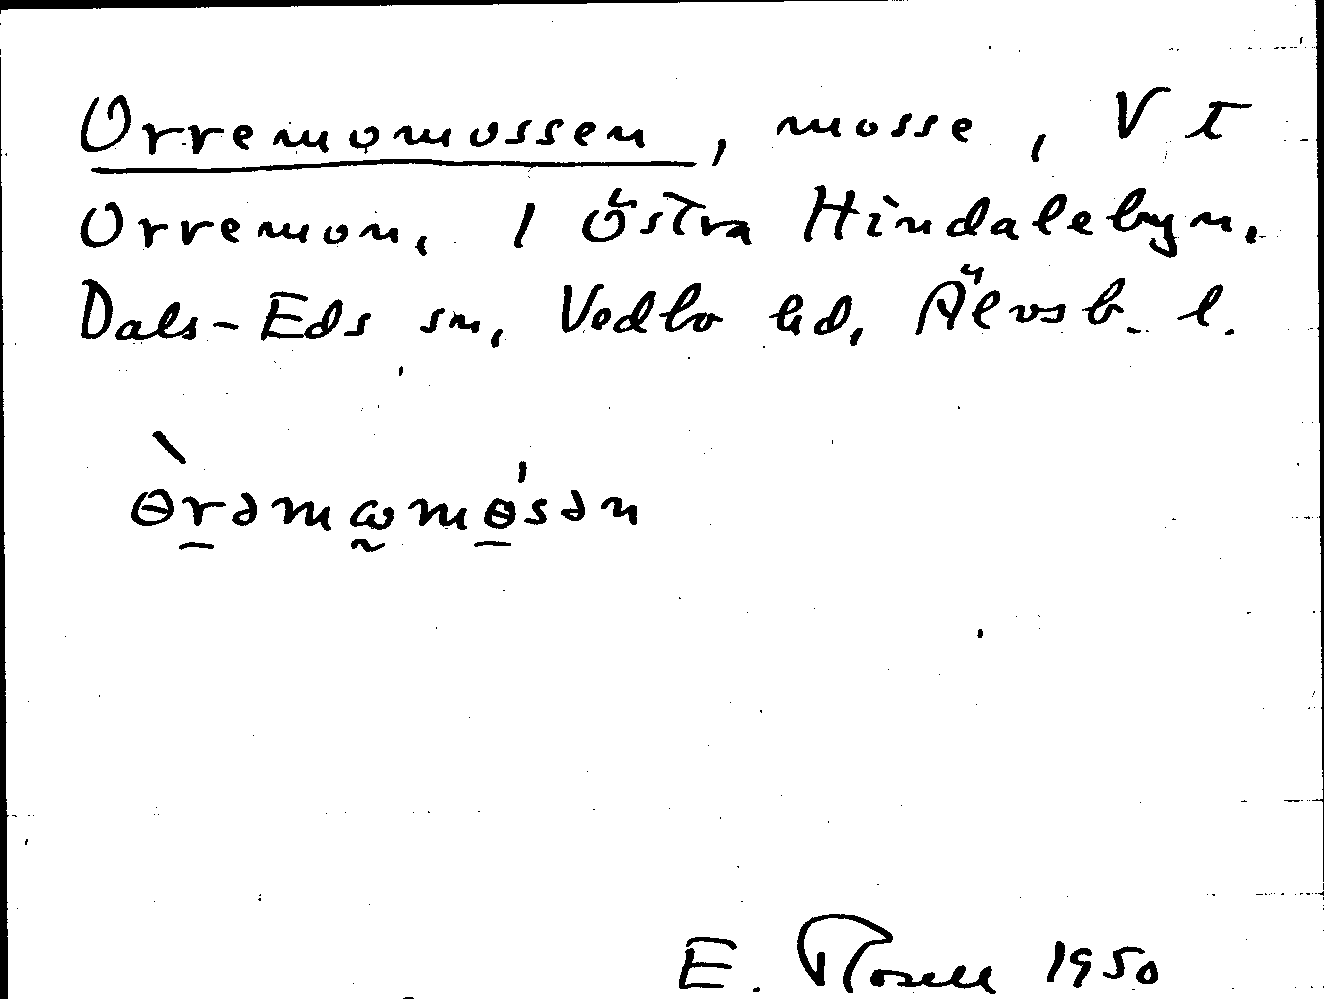 Orremomossen, mosse, V I
Orremon, 1 Östra Hindalebyn,
Dals-Eds sn, Vedbo hd, Älvsb. l.
ɵ̀rəmωmɵ'sən
E. Rosell 1950